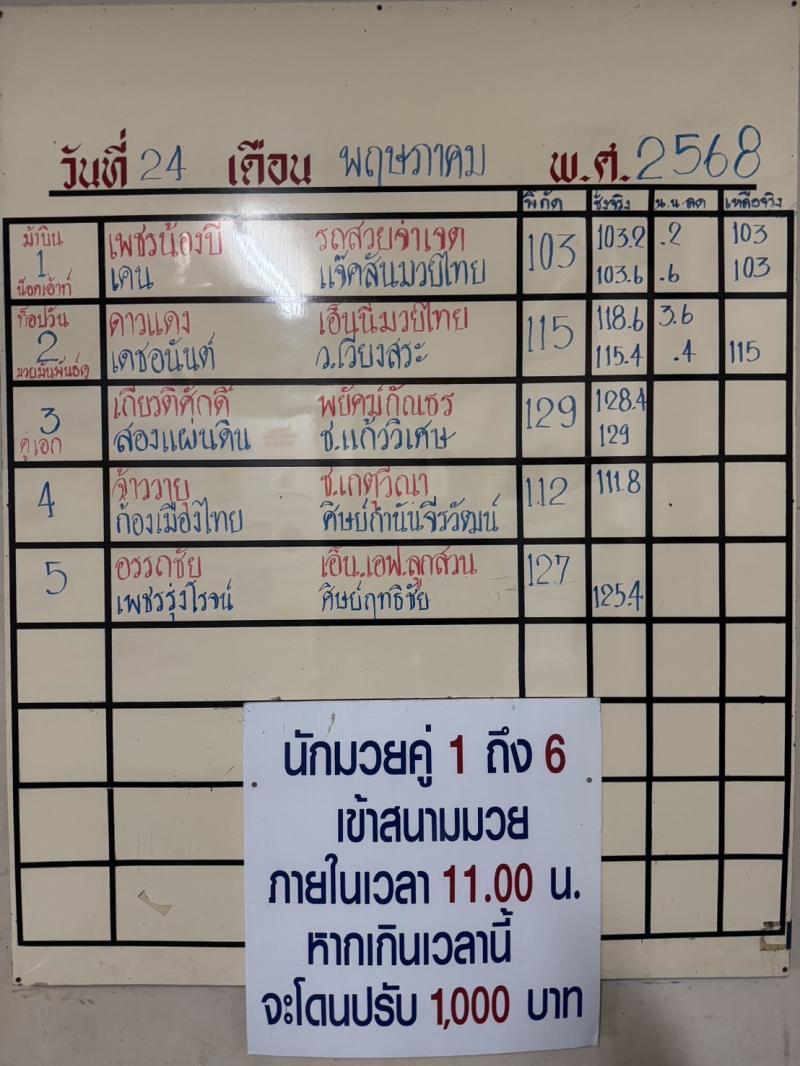 วันที่ 24 เดือน พฤษภาคม พ.ศ. 2568
พิกัด ชั่งจริง น.น.ลด เหลือจริง
ม้าบิน
1
น็อคเอ้าท์
เพชรน้องบี รถสวยจ่าเจด 103 103.2 .2 103
เคน แจ๊คสันมวยไทย 103.6 .6 103
ท็อปวัน
2
มวยมันพันธ์ดุ
ดาวแดง เอ็นนี่มวยไทย 115 118.6 3.6
เดชอนันต์ ว.เวียงสระ 115.4 .4 115
3
คู่เอก
เกียรติศักดิ์ พยัคฆ์กัณธร 129 128.4
สองแผ่นดิน ช.แก้ววิเศษ 129
4
จ้าววายุ ช.เกตุวีณา 112 111.8
ก้องเมืองไทย ศิษย์กำนันจีรวัฒน์
5
อรรถชัย เอ็น.เอฟ.ลูกสวน 127
เพชรรุ่งโรจน์ ศิษย์ฤทธิชัย 125.4
นักมวยคู่ 1 ถึง 6
เข้าสนามมวย
ภายในเวลา 11.00 น.
หากเกินเวลานี้
จะโดนปรับ 1,000 บาท